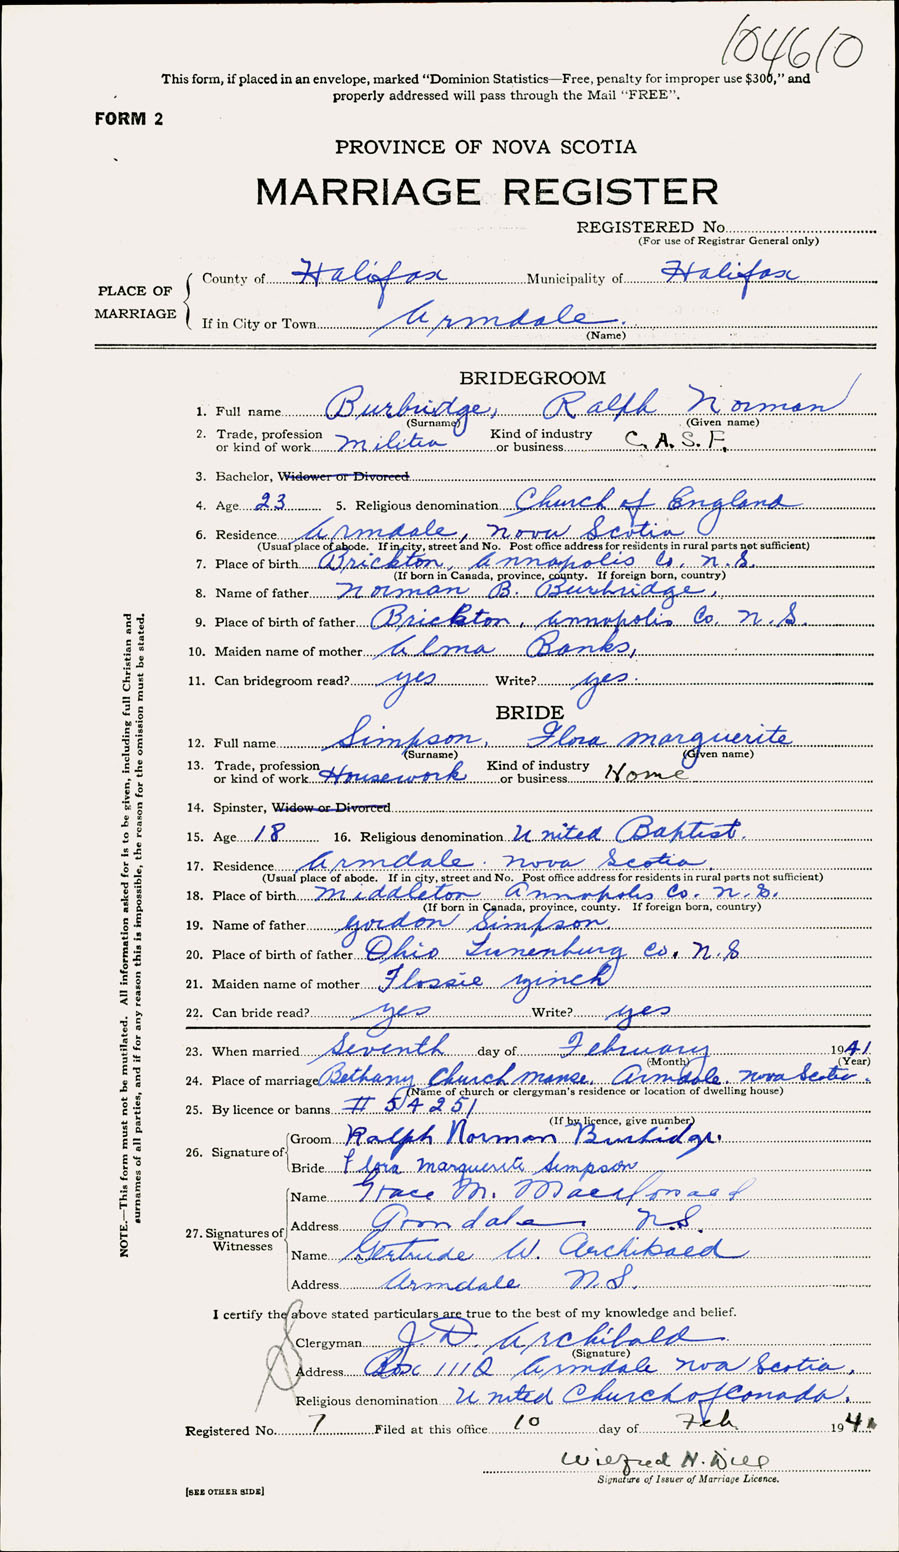 104610
This form, if placed in an envelope, marked "Dominion Statistics—Free, penalty for improper use $300," and
properly addressed will pass through the Mail "FREE".
FORM 2
PROVINCE OF NOVA SCOTIA
MARRIAGE REGISTER
REGISTERED No.
(For use of Registrar General only)
PLACE OF MARRIAGE
County of Halifax Municipality of Halifax
If in City or Town Armdale.
(Name)
BRIDEGROOM
1. Full name Burbridge, Ralph Norman
(Surname) (Given name)
2. Trade, profession or kind of work Militia Kind of industry or business C.A.S.F.
3. Bachelor, Widower or Divorced
4. Age 23 5. Religious denomination Church of England
6. Residence Armdale, Nova Scotia
(Usual place of abode. If in city, street and No. Post office address for residents in rural parts not sufficient)
7. Place of birth Brickton, Annapolis Co. N.S.
(If born in Canada, province, county. If foreign born, country)
8. Name of father Norman B. Burbridge,
9. Place of birth of father Brickton, Annapolis Co. N.S.
10. Maiden name of mother Alma Banks,
11. Can bridegroom read? yes Write? yes.
BRIDE
12. Full name Simpson, Flora Marguerite
(Surname) (Given name)
13. Trade, profession or kind of work Housework Kind of industry or business Home
14. Spinster, Widow or Divorced
15. Age 18 16. Religious denomination United Baptist.
17. Residence Armdale. Nova Scotia.
(Usual place of abode. If in city, street and No. Post office address for residents in rural parts not sufficient)
18. Place of birth Middleton Annapolis Co. N.S.
(If born in Canada, province, county. If foreign born, country)
19. Name of father Gordon Simpson.
20. Place of birth of father Ohio Lunenburg Co. N.S
21. Maiden name of mother Flossie
22. Can bride read? yes Write? yes
23. When married Seventh day of February 1941
(Month) (Year)
24. Place of marriage Bethany Church manse, Armdale. Nova Scotia.
(Name of church or clergyman's residence or location of dwelling house)
25. By licence or banns # 54251
(If by licence, give number)
26. Signature of
Groom Ralph Norman Burbidge.
Bride Flora Marguerite Simpson
27. Signatures of Witnesses
Name Grace M. Macdonald
Address Armdale N.S.
Name Gertrude W. Archibald
Address Armdale N.S.
I certify the above stated particulars are true to the best of my knowledge and belief.
Clergyman J. D. Archibald
(Signature)
Address Box 111Q Armdale Nova Scotia.
Religious denomination United Church of Canada.
Registered No. 7 Filed at this office 10 day of Feb 1941
Wilfred H. Dill
Signature of Issuer of Marriage Licence.
[SEE OTHER SIDE]
NOTE.—This form must not be mutilated. All information asked for is to be given, including full Christian and
surnames of all parties, and if for any reason this is impossible, the reason for the omission must be stated.